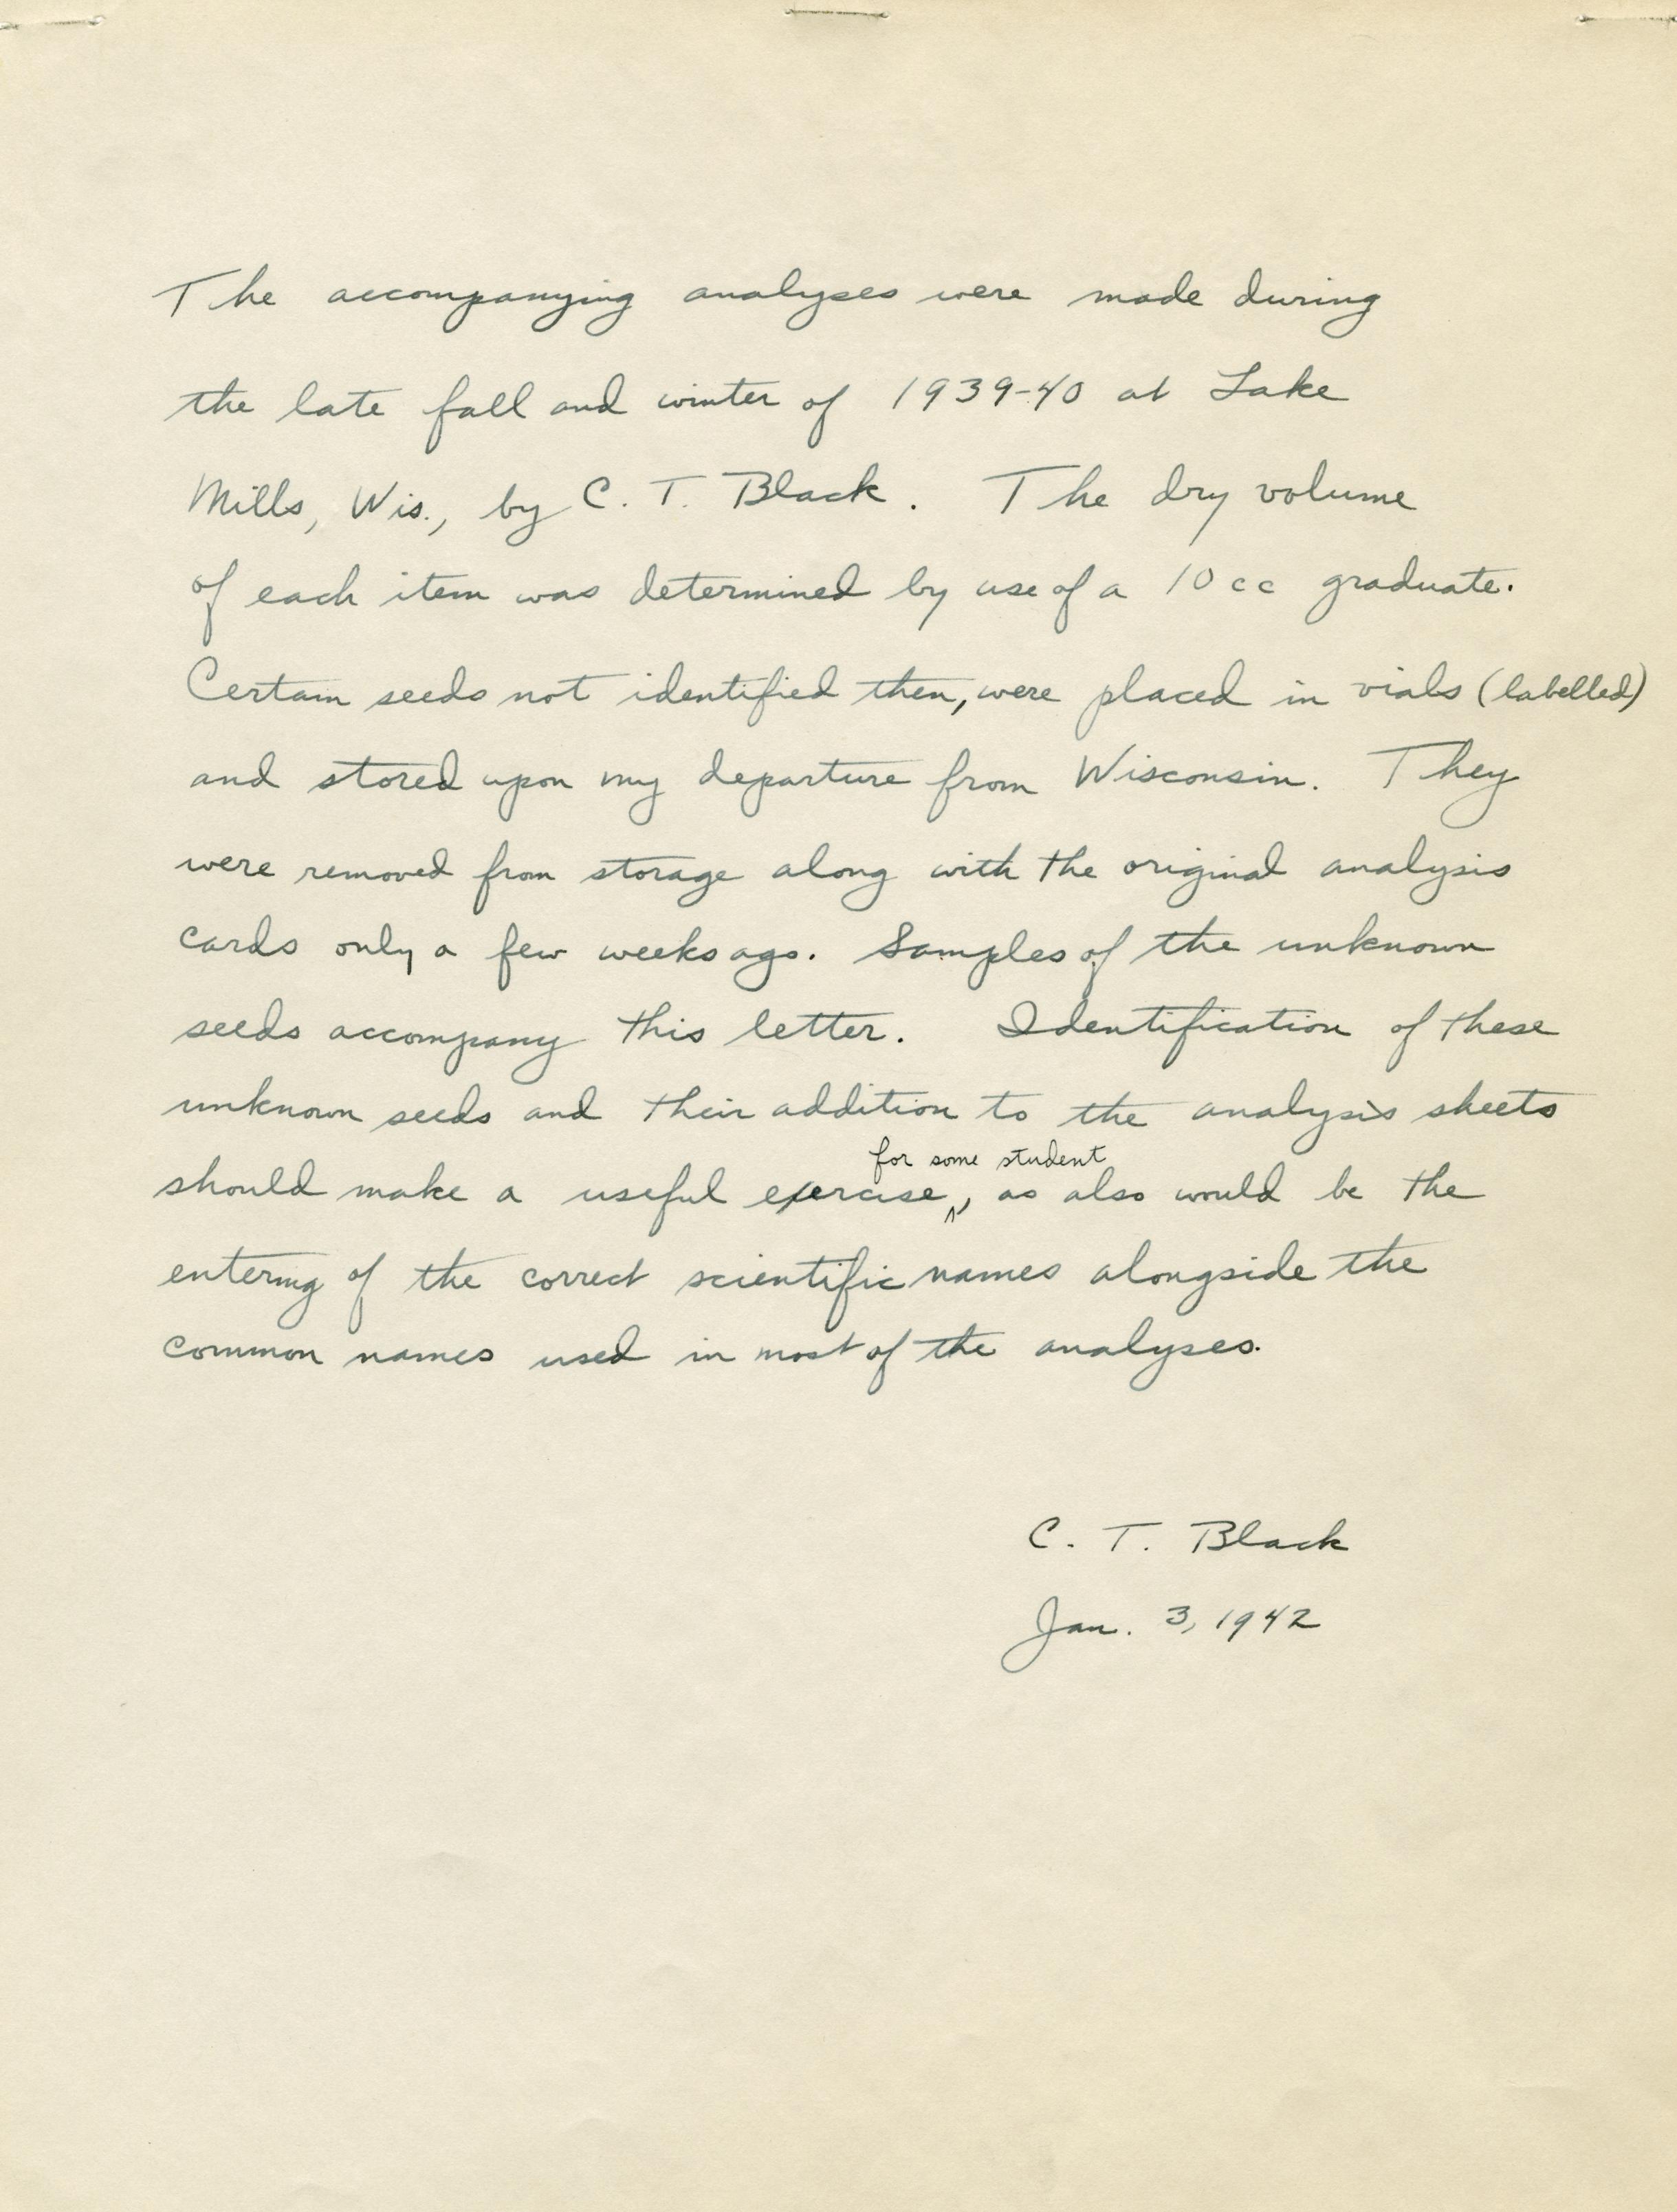 The accompanying analyses were made during
the late fall and winter of 1939-40 at Lake
Mills, Wis., by C. T. Black. The dry volume
of each item was determined by use of a 10 cc graduate.
Certain seeds not identified then, were placed in vials (labelled)
and stored upon my departure from Wisconsin. They
were removed from storage along with the original analysis
cards only a few weeks ago. Samples of the unknown
seeds accompany this letter. Identification of these
unknown seeds and their addition to the analysis sheets
for some student
should make a useful exercise ^, as also would be the
entering of the correct scientific names alongside the
common names used in most of the analyses.
C. T. Black
Jan. 3, 1942